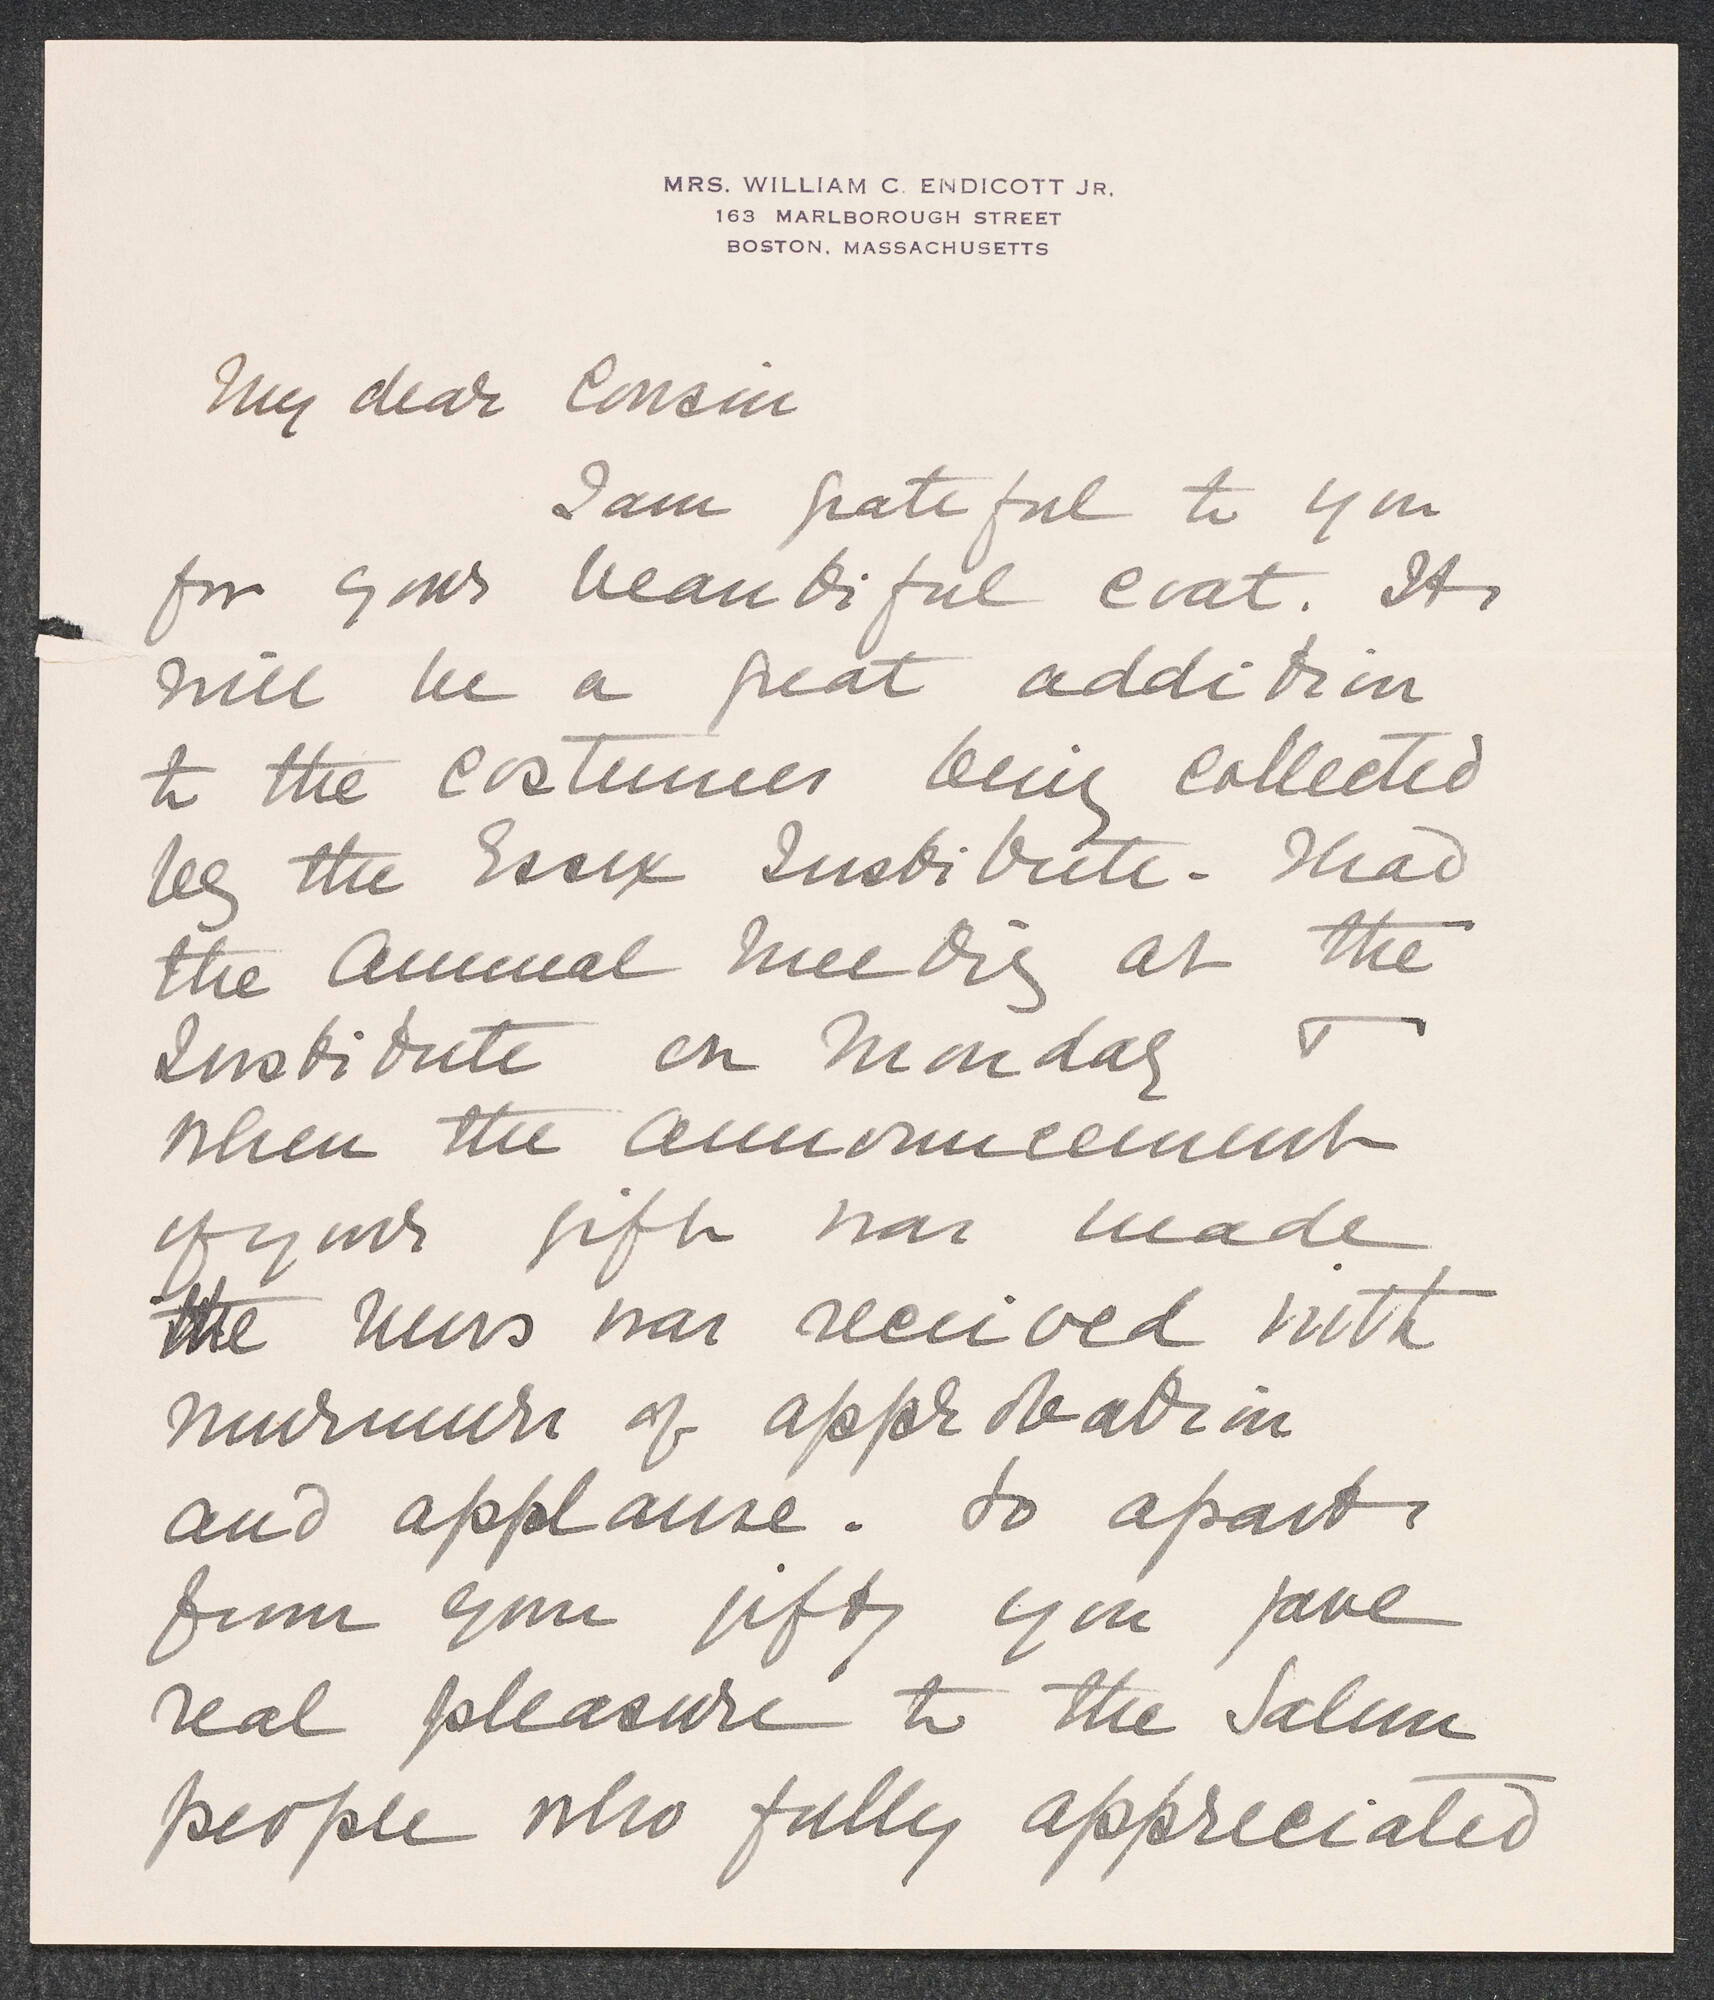 MRS. WILLIAM C. ENDICOTT JR.
163 MARLBOROUGH STREET
BOSTON, MASSACHUSETTS
My dear Cousin
I am grateful to you
for your beautiful coat. It
will be a great addition
to the costumes being collected
by the Essex Institute. I had
the Annual Meeting at the
Institute on Monday &
when the announcement
of your gift was made
the news was received with
murmurs of approbation
and applause. So apart
from your gift, you gave
real pleasure to the Salem
people who fully appreciated